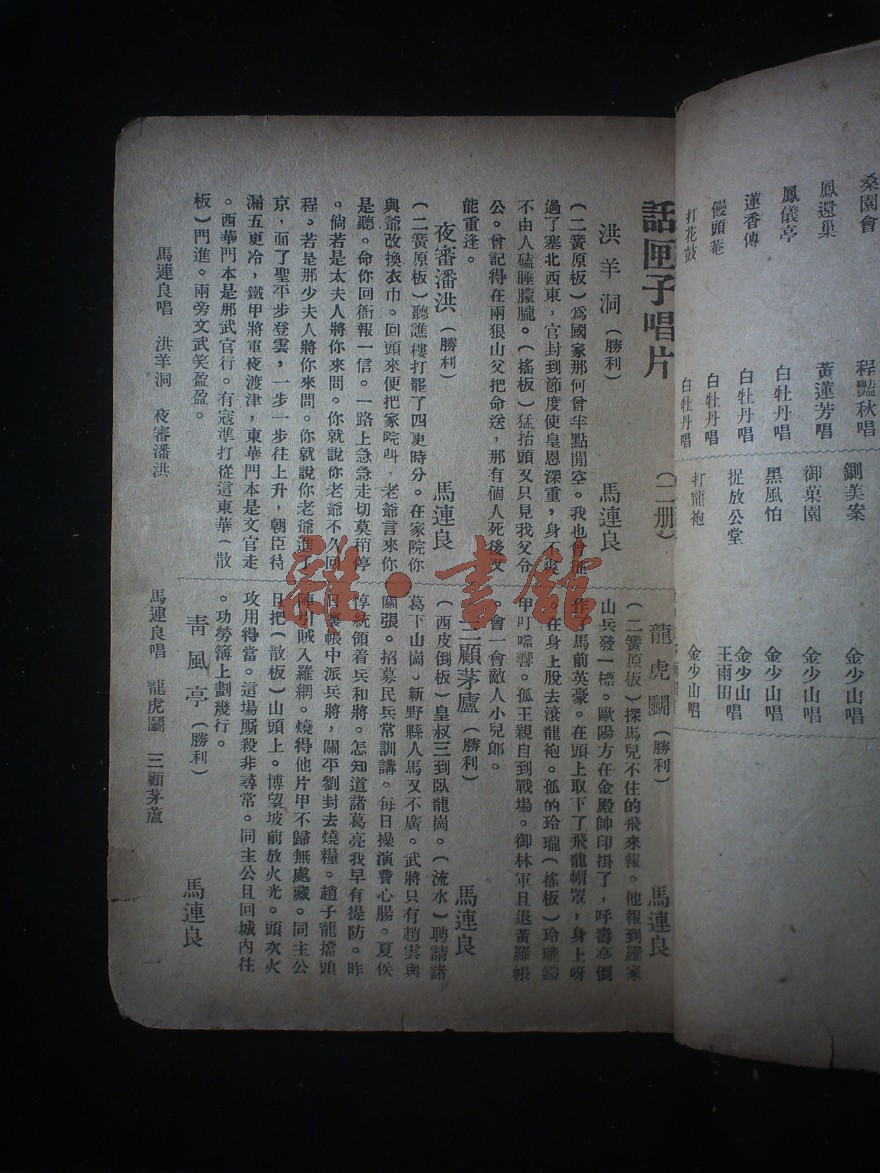 桑園會　程豔秋唱
鳳還巢　黃蓮芳唱
鳳儀亭　白牡丹唱
蓮香傳　白牡丹唱
饅頭菴　白牡丹唱
打花鼓　白牡丹唱
鍘美案　金少山唱
御菓園　金少山唱
黑風怕　金少山唱
捉放公堂　金少山　王雨田唱
打龍袍　金少山唱
話匣子唱片　（二册）
洪羊洞（勝利）　馬連良
（二簧原板）爲國家那何曾半點閒空。我也曾征
過了塞北西東，官封到節度使皇恩深重，身不爽
不由人磕睡朦朧。（搖板）猛抬頭又只見我父令
公。曾記得在兩狼山父把命送，那有個人死後又
能重逢。
夜審潘洪（勝利）　馬連良
（二簧原板）聽譙樓打罷了四更時分。在家院你
與爺改換衣巾。回頭來便把家院叫，老爺言來你
是聽。命你回衙報一信。一路上急急走切莫稍停
。倘若是太夫人將你來問。你就說你老爺不久回
程。若是那少夫人將你來問。你就說你老爺進了
京，面了聖平步登雲，一步一步往上升，朝臣待
漏五更冷，鐵甲將軍夜渡津，東華門本是文官走
。西華門本是那武官行。有寇準打從這東華（散
板）門進。兩旁文武笑盈盈。
馬連良唱　洪羊洞　夜審潘洪
龍虎鬭（勝利）　馬連良
（二簧原板）探馬兒不住的飛來報。他報到羅家
山兵發一標。歐陽方在金殿帥印掛了，呼壽亭倒
作了馬前英豪。在頭上取下了飛龍帽罩，身上呀
。在身上脫去滾龍袍。孤的玲瓏（搖板）玲瓏鎧
甲叮噹響。孤王親自到戰場。御林軍且退黃羅帳
。會一會敵人小兒郎。
三顧茅廬（勝利）　馬連良
（西皮倒板）皇叔三到臥龍崗。（流水）聘請諸
葛下山崗。新野縣人馬又不廣。武將只有趙雲與
關張。招募民兵常訓講。每日操演費心腸。夏侯
惇統領着兵和將。怎知道諸葛亮我早有提防。昨
日裏帳中派兵將，關平劉封去燒糧。趙子龍擋頭
陣引賊入羅網。燒得他片甲不歸無處藏。同主公
且把（散板）山頭上。博望坡前放火光。頭次火
攻用得當。這場厮殺非尋常。同主公且回城內往
。功勞簿上劃幾行。
青風亭（勝利）　馬連良
馬連良唱　龍虎鬭　三顧茅蘆
一
雜·書館